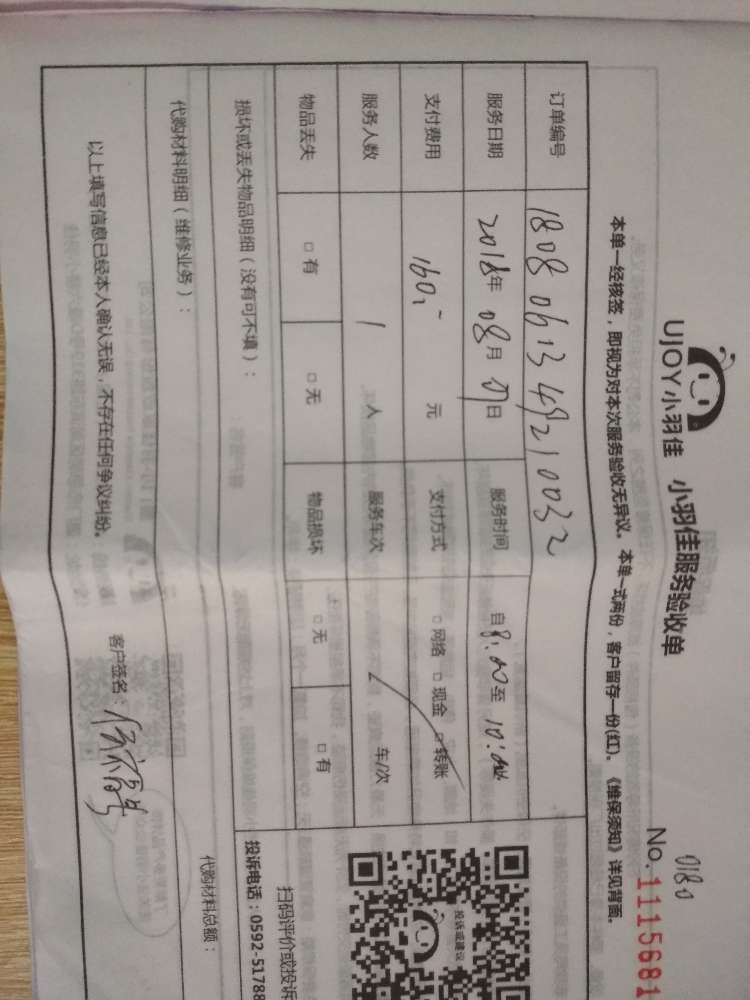 UJOY小羽佳 小羽佳服务验收单
0180
No. 1115681
本单一经核签，即视为对本次服务验收无异议。本单一式两份，客户留存一份(红)。《维保须知》详见背面。
订单编号 1808061349210032
服务日期 2018年 08月 07日 服务时间 自 8:00 至 10:00
支付费用 160 元 支付方式 □网络 □现金 □转账
服务人数 1 人 服务车次 车/次
物品丢失 □有 □无 物品损坏 □无 □有
投诉或建议
扫码评价或投诉
损坏或丢失物品明细（没有可不填）：
投诉电话：0592-51788
代购材料明细（维修业务）：
代购材料总额：
以上填写信息已经本人确认无误，不存在任何争议纠纷。
客户签名：